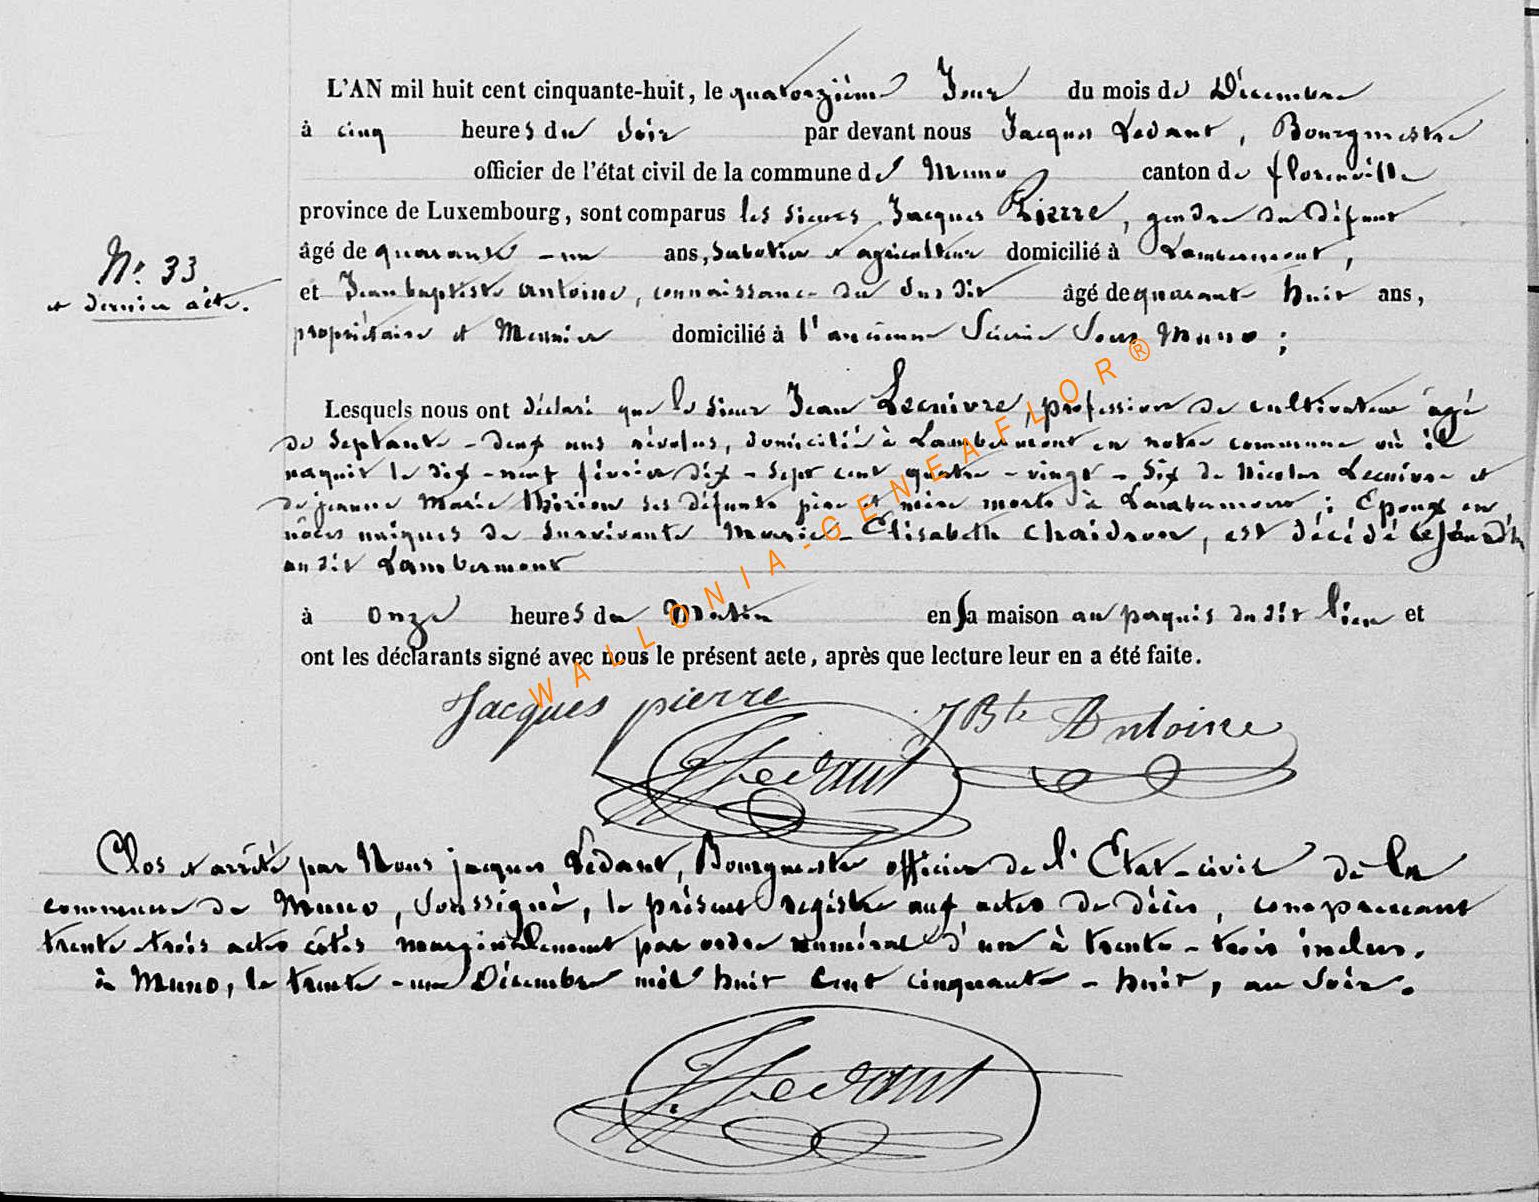 L'AN mil huit cent cinquante-huit, le quatorzième Jour du mois de Décembre
à cinq heures du Soir par devant nous Jacques Ledant, Bourgmestre
officier de l'état civil de la commune de Muno canton de florenville
province de Luxembourg, sont comparus les sieurs Jacques Pierre, gendre du défunt
âgé de quarante-un ans, Sabotier et agriculteur domicilié à Lambermont,
N.º 33
et dernier acte.
et Jean baptiste Antoine, connaissance du Susdit âgé de quarante huit ans,
propriétaire et Meunier domicilié à l'ancienne Scierie Sous Muno ;
Lesquels nous ont déclaré que le Sieur Jean Lecuivre, profession de cultivateur âgé
de Septante-deux ans révolus, domicilié à Lambermont en notre commune où il
naquit le dix-neuf février dix-sept cent quatre-vingt-Six de Nicolas Lecuivre et
de jeanne Marie Thirion ses défunts père et mère morts à Lambermont ; Epoux en
nôces uniques de Survivante Marie-Elisabeth Chaidron, est décédé ce jourd'h
au dit Lambermont
à onze heures du Matin en sa maison au paquis du dit lieu et
ont les déclarants signé avec nous le présent acte, après que lecture leur en a été faite.
WALLONIA-GENEAFLOR®
Jacques pierre JBte Antoine
J Ledant
Clos et arrêté par Nous jacques Ledant, Bourgmestre officier de l'Etat-civil de la
commune de Muno, Soussigné, le présent registre aux actes de décès, comprenant
trente-trois actes côtés marginalement par ordre numéral d'un à trente-trois inclus.
à Muno, le trente-un Décembre mil huit Cent cinquante-huit, au Soir.
J. Ledant